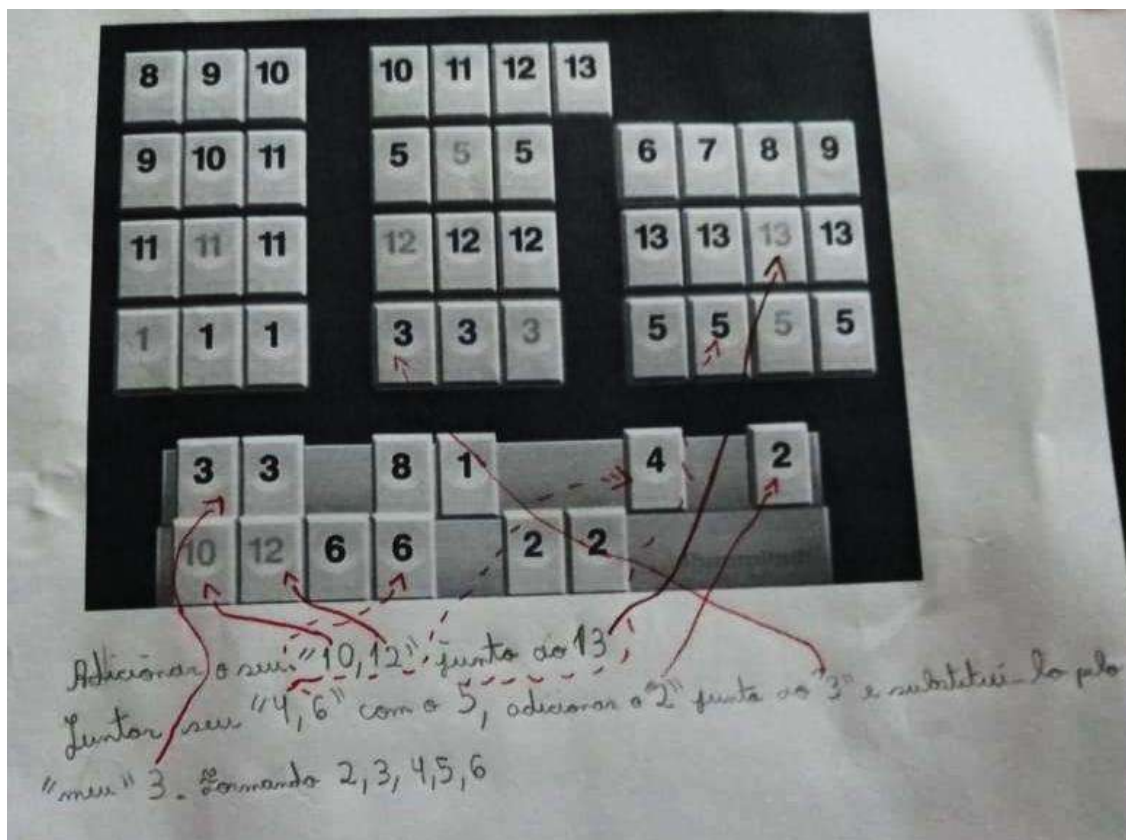 8 9 10 10 11 12 13
9 10 11 5 5 5 6 7 8 9
11 11 11 12 12 12 13 13 13 13
1 1 1 3 3 3 5 5 5 5
3 3 8 1 4 2
10 12 6 6 2 2
Adicionar o seu "10,12" junto ao 13
Juntar seu "4,6" com o 5, adicionar o "2" junto ao "3" e substituí-lo pelo
"meu" 3. Formando 2, 3, 4, 5, 6